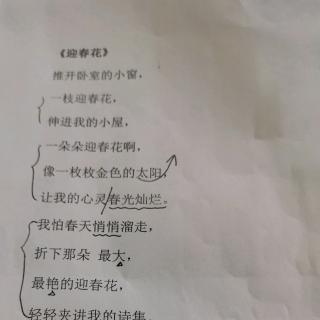 《迎春花》
推开卧室的小窗，
一枝迎春花，
伸进我的小屋，
一朵朵迎春花啊，
像一枚枚金色的太阳，
让我的心灵春光灿烂。
我怕春天悄悄溜走，
折下那朵 最大，
最艳的迎春花，
轻轻夹进我的诗集，